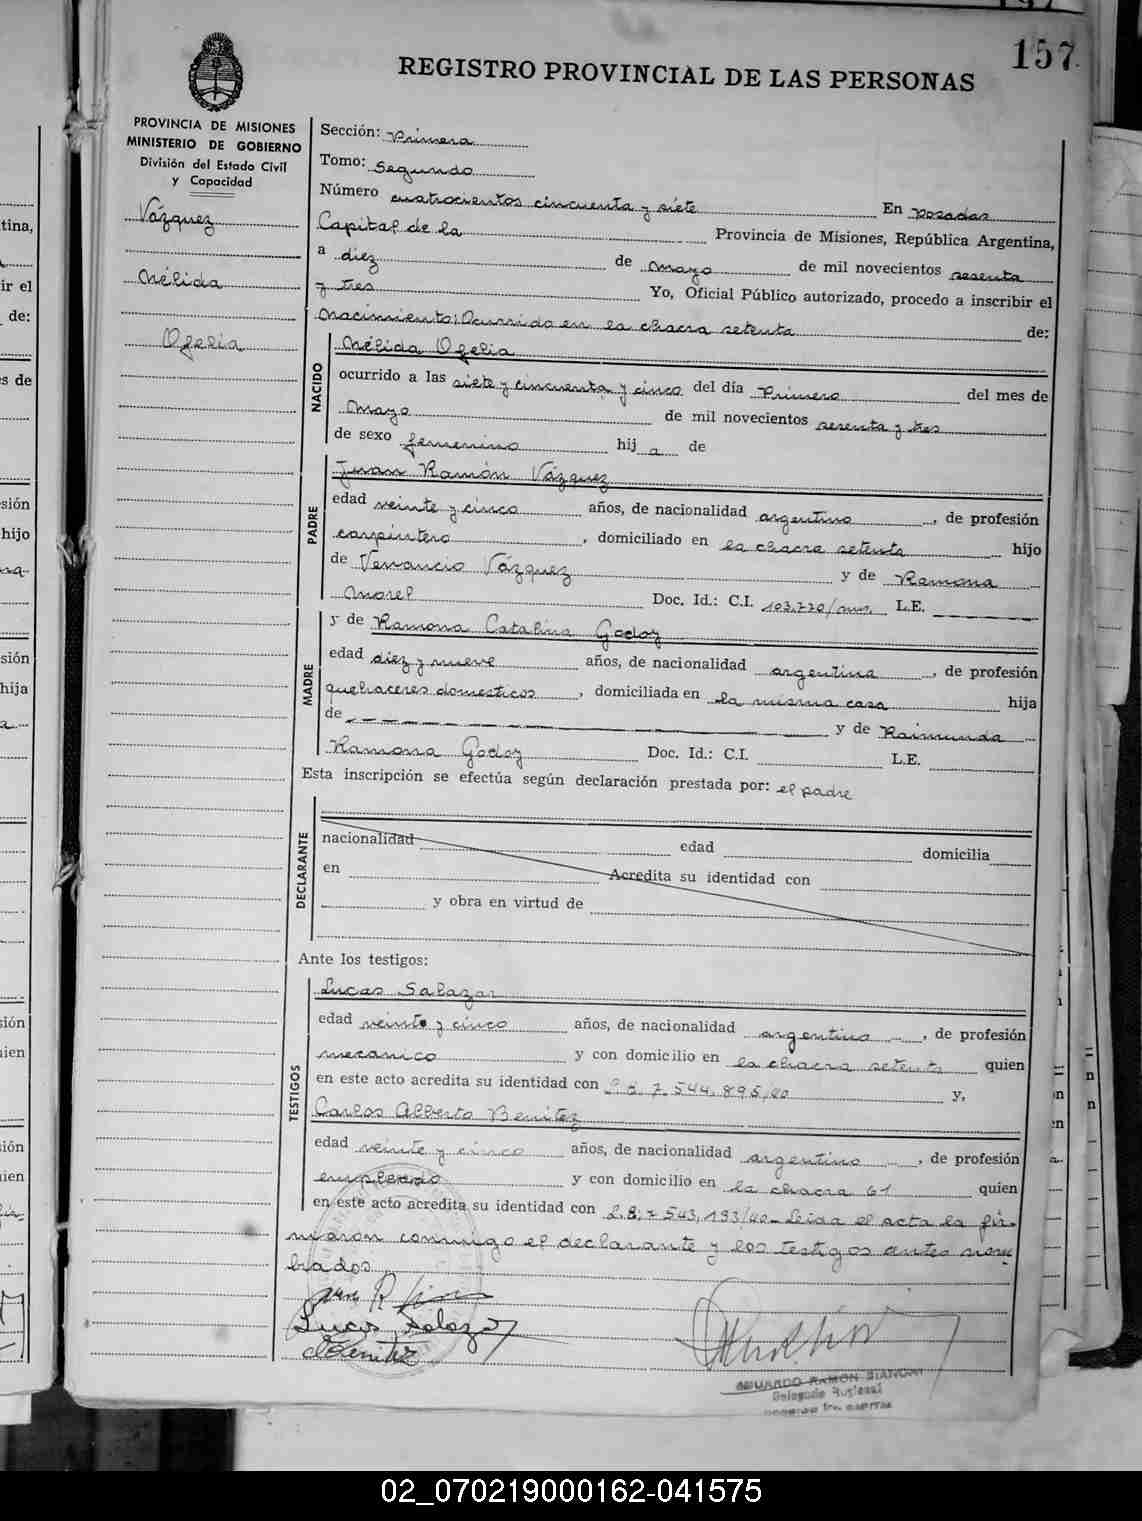 157
REGISTRO PROVINCIAL DE LAS PERSONAS
PROVINCIA DE MISIONES
MINISTERIO DE GOBIERNO
División del Estado Civil
y Capacidad
Vázquez
Nélida
Ofelia
Sección: Primera
Tomo: Segundo
Número cuatrocientos cincuenta y siete En Posadas
Capital de la Provincia de Misiones, República Argentina,
a diez de mayo de mil novecientos sesenta
y tres Yo, Oficial Público autorizado, procedo a inscribir el
Nacimiento; Ocurrido en la chacra setenta de:
NACIDO
Nélida Ofelia
ocurrido a las siete y cincuenta y cinco del día Primero del mes de
Mayo de mil novecientos sesenta y tres
de sexo femenino hij a de
PADRE
Juan Ramón Vázquez
edad veinte y cinco años, de nacionalidad argentino, de profesión
carpintero, domiciliado en la chacra setenta hijo
de Venancio Vázquez y de Ramona
Morel Doc. Id.: C.I. 103.770/mnes. L.E.
MADRE
y de Ramona Catalina Godoy
edad diez y nueve años, de nacionalidad argentina, de profesión
quehaceres domesticos, domiciliada en la misma casa hija
de y de Raimunda
Ramona Godoy Doc. Id.: C.I. L.E.
Esta inscripción se efectúa según declaración prestada por: el padre
DECLARANTE
nacionalidad edad domicilia
en Acredita su identidad con
y obra en virtud de
Ante los testigos:
TESTIGOS
Lucas Salazar
edad veinte y cinco años, de nacionalidad argentino, de profesión
mecanico y con domicilio en la chacra setenta quien
en este acto acredita su identidad con 7.544.895/40 y,
Carlos Alberto Benitez
edad veinte y cinco años, de nacionalidad argentino, de profesión
empleado y con domicilio en la chacra 61 quien
en este acto acredita su identidad con 7.543.193/40_ Leída el acta la fir-
maron conmigo el declarante y los testigos antes nom-
brados
Lucas Salazar
CBenitez
EDUARDO RAMON BIANCHI
Delegado
02_070219000162-041575